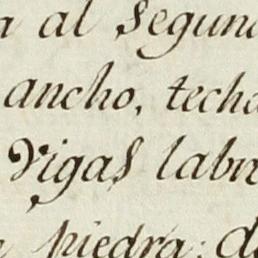 a al Segund
ancho, techa
Vigas labra
piedra: de